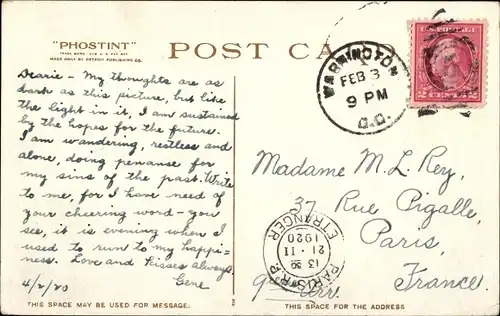 "PHOSTINT"
TRADE MARK
MADE ONLY BY DETROIT PUBLISHING CO.
POST CA
Dearie - My thoughts are as
dark as this picture, but like
the light in it, I am sustained
by the hopes for the future.
I am wandering, restless and
alone, doing penanse for
my sins of the past. Write
to me, for I have need of
your cheering word - you
see, it is evening when I
used to run to my happi-
ness. Love and kisses always.
Gene
4/2/20
THIS SPACE MAY BE USED FOR MESSAGE.
WASHINGTON
FEB 3
9 PM
D.C.
2 CENTS 2
Madame M. L. Rey,
37 Rue Pigalle,
Paris,
France.
PARIS R.P.
13 30
21 - II
1920
ETRANGER
THIS SPACE FOR THE ADDRESS